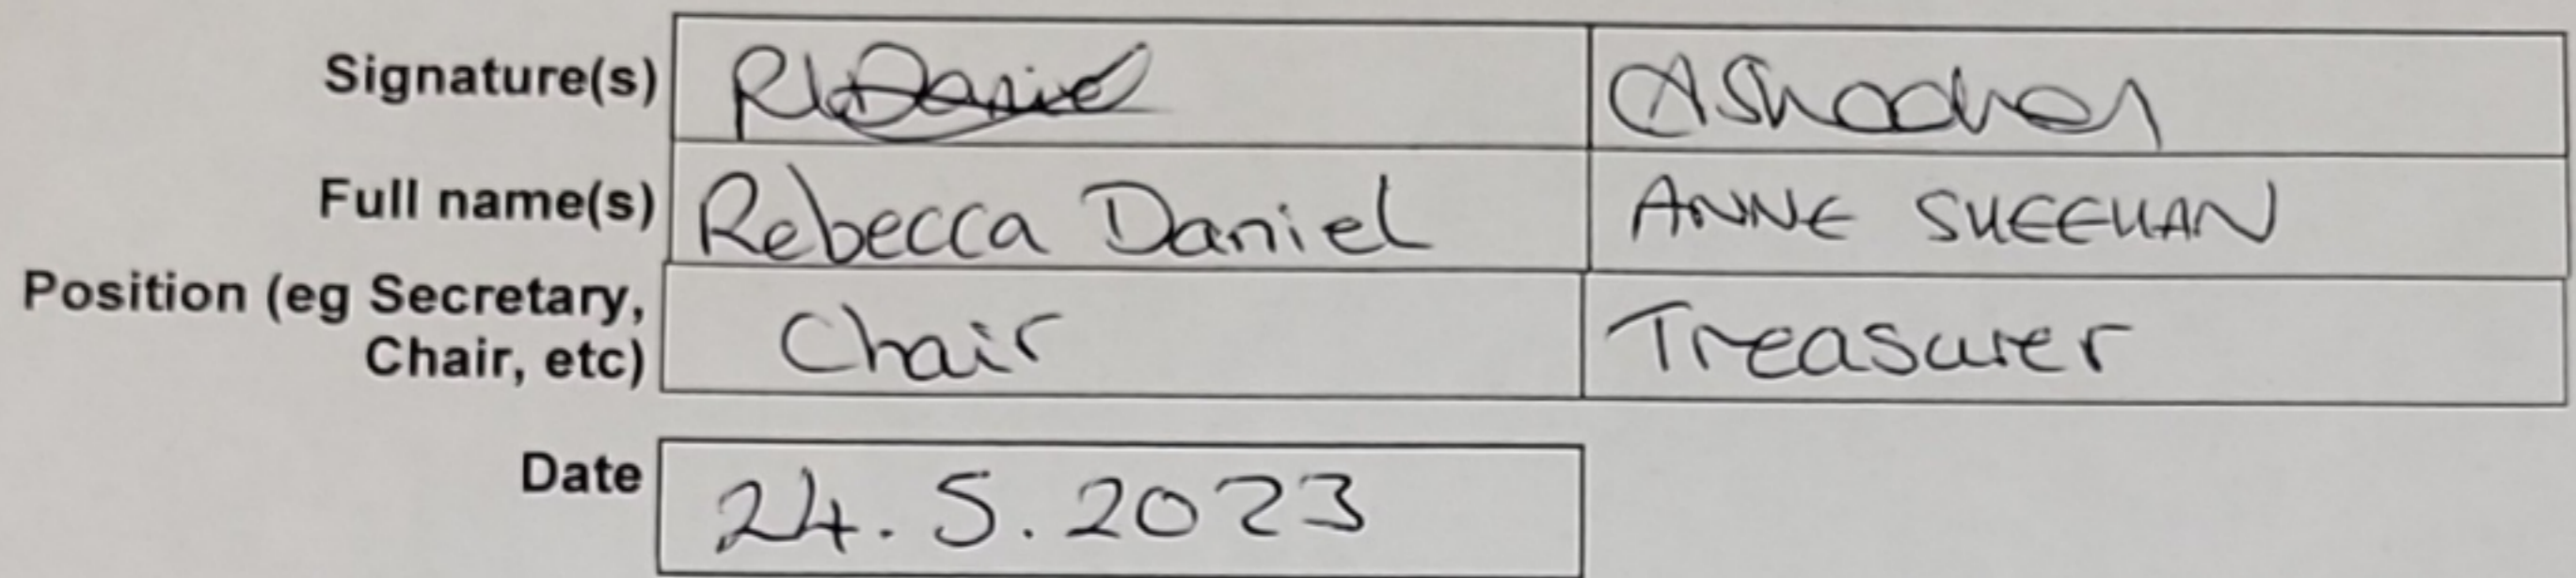 Signature(s) RL Daniel A Sheehan
Full name(s) Rebecca Daniel ANNE SHEEHAN
Position (eg Secretary,
Chair, etc) Chair Treasurer
Date 24.5.2023